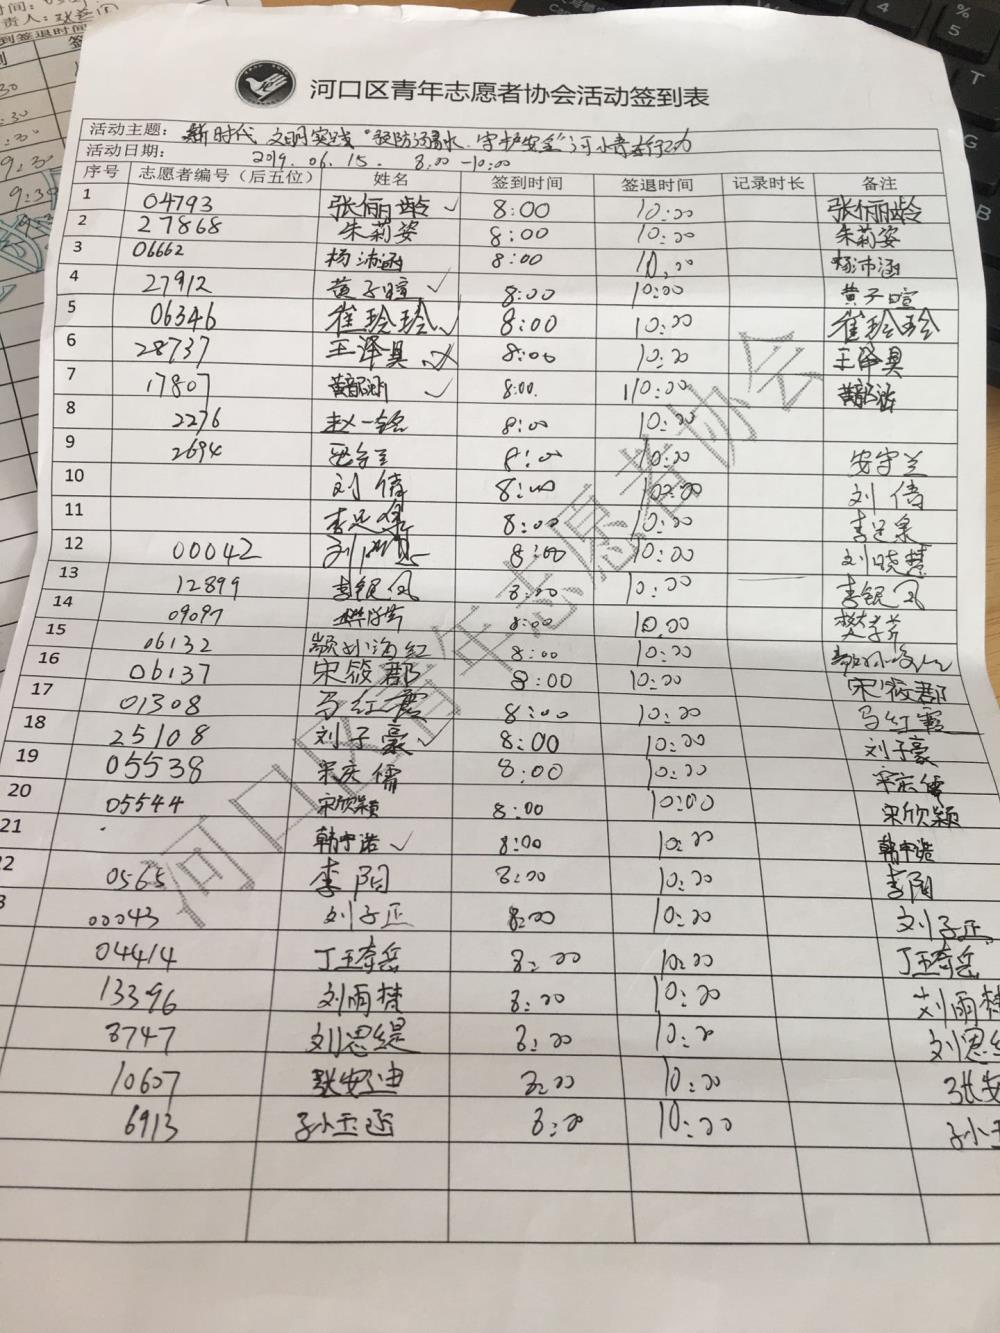 河口区青年志愿者协会活动签到表
活动主题: 新时代 文明实践 "预防溺水 守护安全" 河小青在行动
活动日期: 2019.06.15. 8:00-10:00
序号 志愿者编号（后五位） 姓名 签到时间 签退时间 记录时长 备注
1 04793 张俪龄 8:00 10:00 张俪龄
2 27868 朱莉姿 8:00 10:00 朱莉姿
3 06662 杨沛涵 8:00 10:00 杨沛涵
4 27912 黄子暄 8:00 10:00 黄子暄
5 06346 崔玲玲 8:00 10:00 崔玲玲
6 28737 王泽昊 8:00 10:00 王泽昊
7 17807 8:00 10:00
8 2276 赵一铭 8:00 10:00
9 2694 安守兰 8:00 10:00 安守兰
10 刘倩 8:00 10:00 刘倩
11 8:00 10:00
12 00042 刘晓慧 8:00 10:00 刘晓慧
13 12899 李银凤 8:00 10:00 李银凤
14 09097 8:00 10:00
15 06132 8:00 10:00
16 06137 宋筱郡 8:00 10:00 宋筱郡
17 01308 马红霞 8:00 10:00 马红霞
18 25108 刘子豪 8:00 10:00 刘子豪
19 05538 宋庆儒 8:00 10:00 宋庆儒
20 05544 宋欣颖 8:00 10:00 宋欣颖
21 韩中浩 8:00 10:00 韩中浩
2 0565 李阳 8:00 10:00 李阳
3 00043 刘子正 8:00 10:00 刘子正
04414 丁王奇岳 8:00 10:00 丁王奇岳
13396 刘雨梵 8:00 10:00 刘雨梵
8747 刘思缇 8:00 10:00 刘思
10607 张安迪 8:00 10:00 张安
6913 孙玉函 8:00 10:00 孙玉
河口区青年志愿者协会